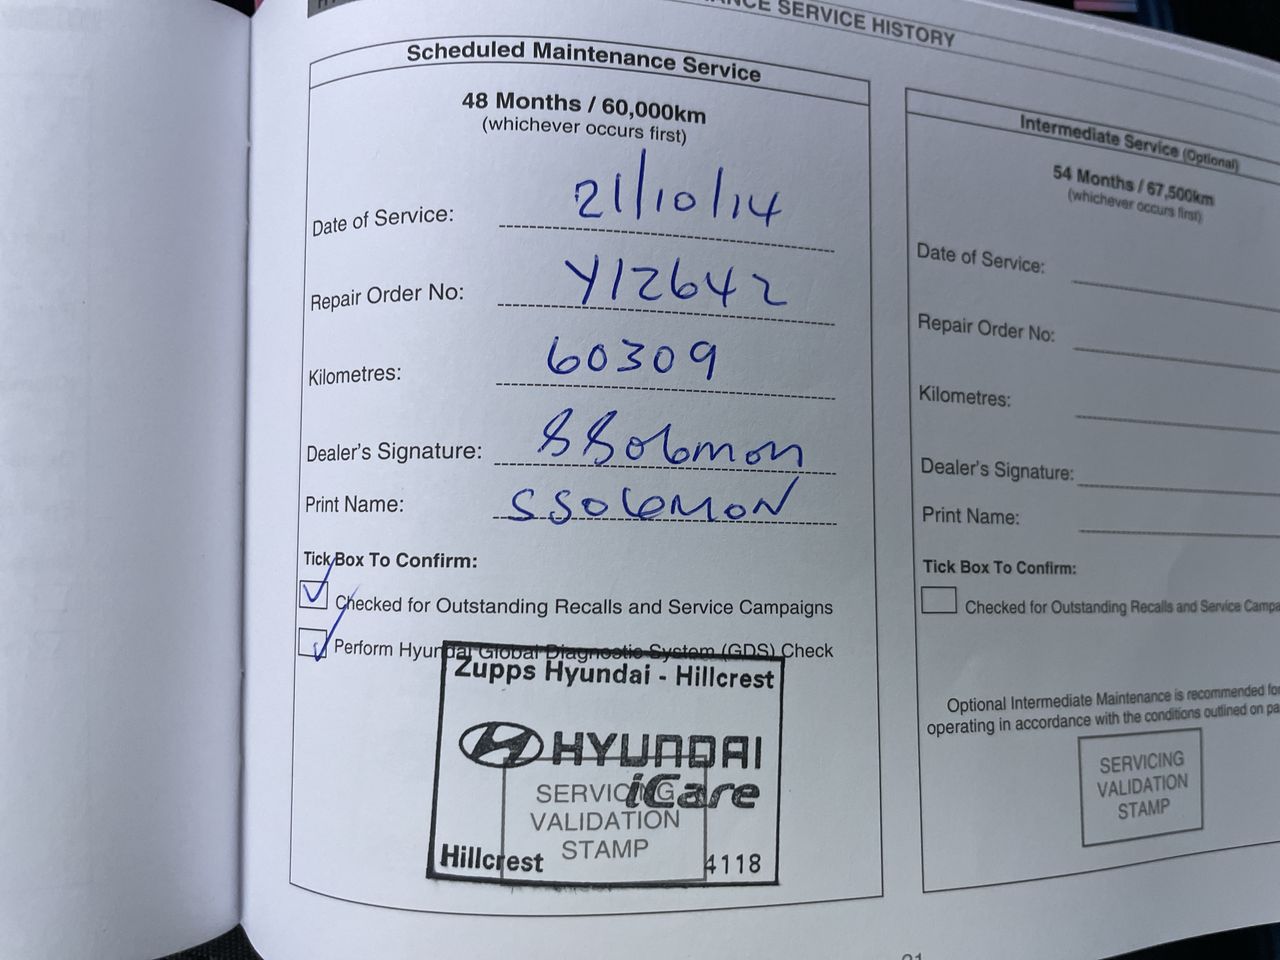 NCE SERVICE HISTORY
Scheduled Maintenance Service
48 Months / 60,000km
(whichever occurs first)
Date of Service: 21/10/14
Repair Order No: Y12642
Kilometres: 60309
Dealer's Signature: SSolomon
Print Name: SSOLOMON
Tick Box To Confirm:
Checked for Outstanding Recalls and Service Campaigns
Perform Hyundai Global Diagnostic System (GDS) Check
Zupps Hyundai - Hillcrest
HYUNDAI
iCare
SERVICING
VALIDATION
STAMP
Hillcrest 4118
Intermediate Service (Optional)
54 Months / 67,500km
(whichever occurs first)
Date of Service:
Repair Order No:
Kilometres:
Dealer's Signature:
Print Name:
Tick Box To Confirm:
Checked for Outstanding Recalls and Service Campa
Optional Intermediate Maintenance is recommended for
operating in accordance with the conditions outlined on pa
SERVICING
VALIDATION
STAMP